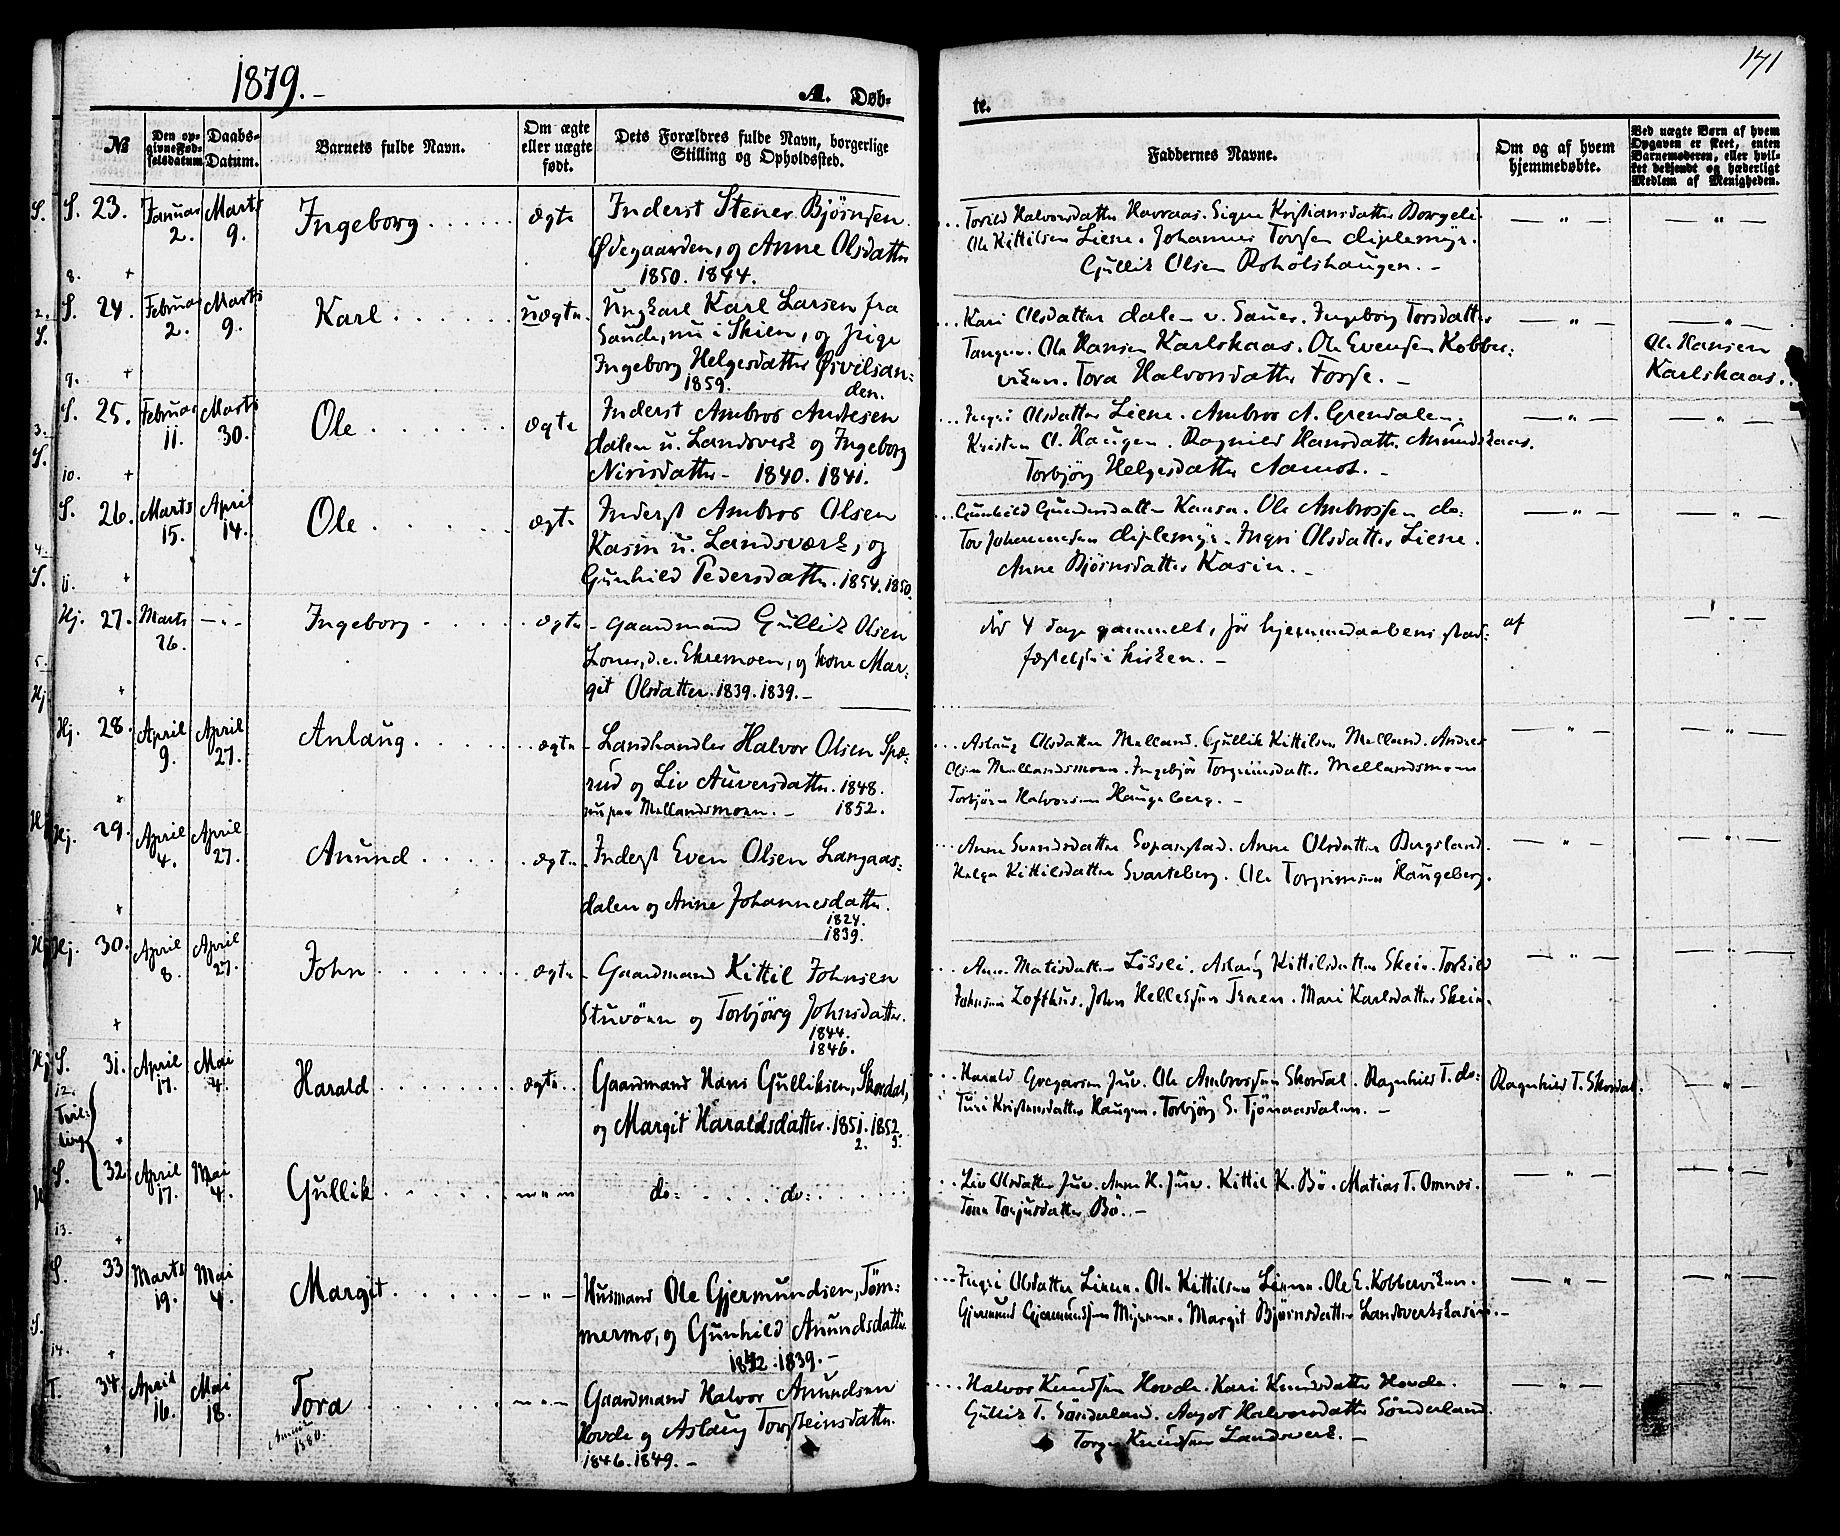 1879.-
A. Døb-
te.
141
№
Den op-
givne Fød-
selsdatum
Daabs-
Datum.
Barnets fulde Navn.
Om ægte
eller uægte
født.
Dets Forældres fulde Navn, borgerlige
Stilling og Opholdssted.
Faddernes Navne.
Om og af hvem
hjemmedøbte.
Ved uægte Børn af hvem
Opgaven er skeet, enten
Barnemoderen, eller hvil-
ket bekjendt og hæderligt
Medlem af Menigheden.
S. 23. Januar 2. Marts 9. Ingeborg ægte
Inderst Stener Bjørnsen
Ødegaarden, og Anne Olsdatter
1850. 1844.
Torild Halvorsdatter Havraas. Signe Kristiansdatter Borgeli
Ole Kittilsen Liene. Johannes Torsen Diplemyr.
Gullik Olsen Roholshaugen. -
8. +
S. 24. Februar 2. Marts 9. Karl uægte
Ungkarl Karl Larsen fra
Saude, nu i Skien, og Pige
Ingeborg Helgesdatter Ørvilsan-
1859. den.
Kari Olsdatter Dalen u. Sauer. Ingeborg Torsdatter
Tangen. Ole Hansen Karlskaas. Ole Evensen Kobber-
viken. Tora Halvorsdatter Fosse. -
Ole Hansen
Karlskaas.
9. +
S. 25. Februar 11. Marts 30. Ole ægte
Inderst Ambros Andresen
Dalen u. Landsverk og Ingeborg
Nirisdatter - 1840. 1841.
Ingri Olsdatter Liene. Ambros A. Grendalen.
Kristen O. Haugen. Ragnild Hansdatter Anundskaas.
Torbjørg Helgesdatter Aamot. -
10. +
S. 26. Marts 15. April 14. Ole ægte
Inderst Ambros Olsen
Kasin u. Landsværk, og
Gunhild Pedersdatter. 1854. 1850.
Gunhild Gundersdatter Kaasa. Ole Ambrossen do:
Tov Johannesen Diplemyr. Ingri Olsdatter Liene.
Anne Bjørnsdatter Kasin. -
11. +
Hj. 27. Marts 26. Ingeborg ægte
Gaardmand Gullik Olsen
Loner, d.e. Ekremoen, og Kone Mar-
git Olsdatter. 1839. 1839. -
Død 4 Dage gammelt, før hjemmedaabens stad-
fæstelse i Kirken. -
af
Hj. 28. April 9. April 27. Anlaug ægte
Landhandler Halvor Olsen Spæ-
rud og Liv Auversdatter. 1848.
nu paa Mellandsmoen. - 1852.
Aslaug Olsdatter Melland. Gullik Kittilsen Melland. Andres
Olsen Mellandsmoen. Ingebjør Torgrimsdatter Mellandsmoen
Torbjørn Halvorsen Haugeberg. -
Hj. 29. April 4. April 27. Anund ægte
Inderst Even Olsen Langaas-
dalen og Anne Johannesdatter.
1824.
1839.
Anne Svendsdatter Sopanstad. Anne Olsdatter Bergsland.
Helga Kittilsdatter Svarteberg. Ole Torgrimsen Haugeberg.
Hj. 30. April 8. April 27. John ægte
Gaardmand Kittil Johnsen
Stuvøen og Torbjørg Johnsdatter.
1844.
1846.
Anne Matisdatter Lislei. Aslaug Kittilsdatter Skein. Torkild
Johnsen Lofthus. John Hellesen Tenen. Mari Karlsdatter Skein.
S. 31. April 17. Mai 4. Harald ægte
Gaardmand Hans Gulliksen, Skordal,
og Margit Haraldsdatter. 1851. 1852
Harald Gregarsen Juv. Ole Ambrossen Skordal. Ragnhild T. do:
Turi Kristensdatter Haugen. Torbjørg S. Tjønaasdalen. -
Ragnhild T. Skordal.
12. Tvil-
ling +
S. 32 April 17. Mai 4. Gullik do: do:
Liv Olsdatter Juv. Anne H. Juve. Kittil K. Bö. Matias T. Omnes.
Tone Torjusdatter Bö. -
13. +
S. 33 Marts 19. Mai 4. Margit
Husmand Ole Gjermundsen, Tøm-
mermo, og Gunhild Anundsdatter.
1842. 1839. -
Ingri Olsdatter Liene. Ole Kittilsen Liene. Ole E. Kobberviken.
Gjermund Gjermundsen Myrene. Margit Bjørnsdatter Landsverkskasin. -
14. +
T. 34. April 16. Mai 18. Tora
1880.
Gaardmand Halvor Anundsen
Hovde og Aslaug Torsteinsdatter.
1846. 1849. -
Halvor Knudsen Hovde. Kari Knudsdatter Hovde.
Gullik T. Sönderland. Aagot Halvorsdatter Sönderland.
Torger Knudsen Landsverk. -